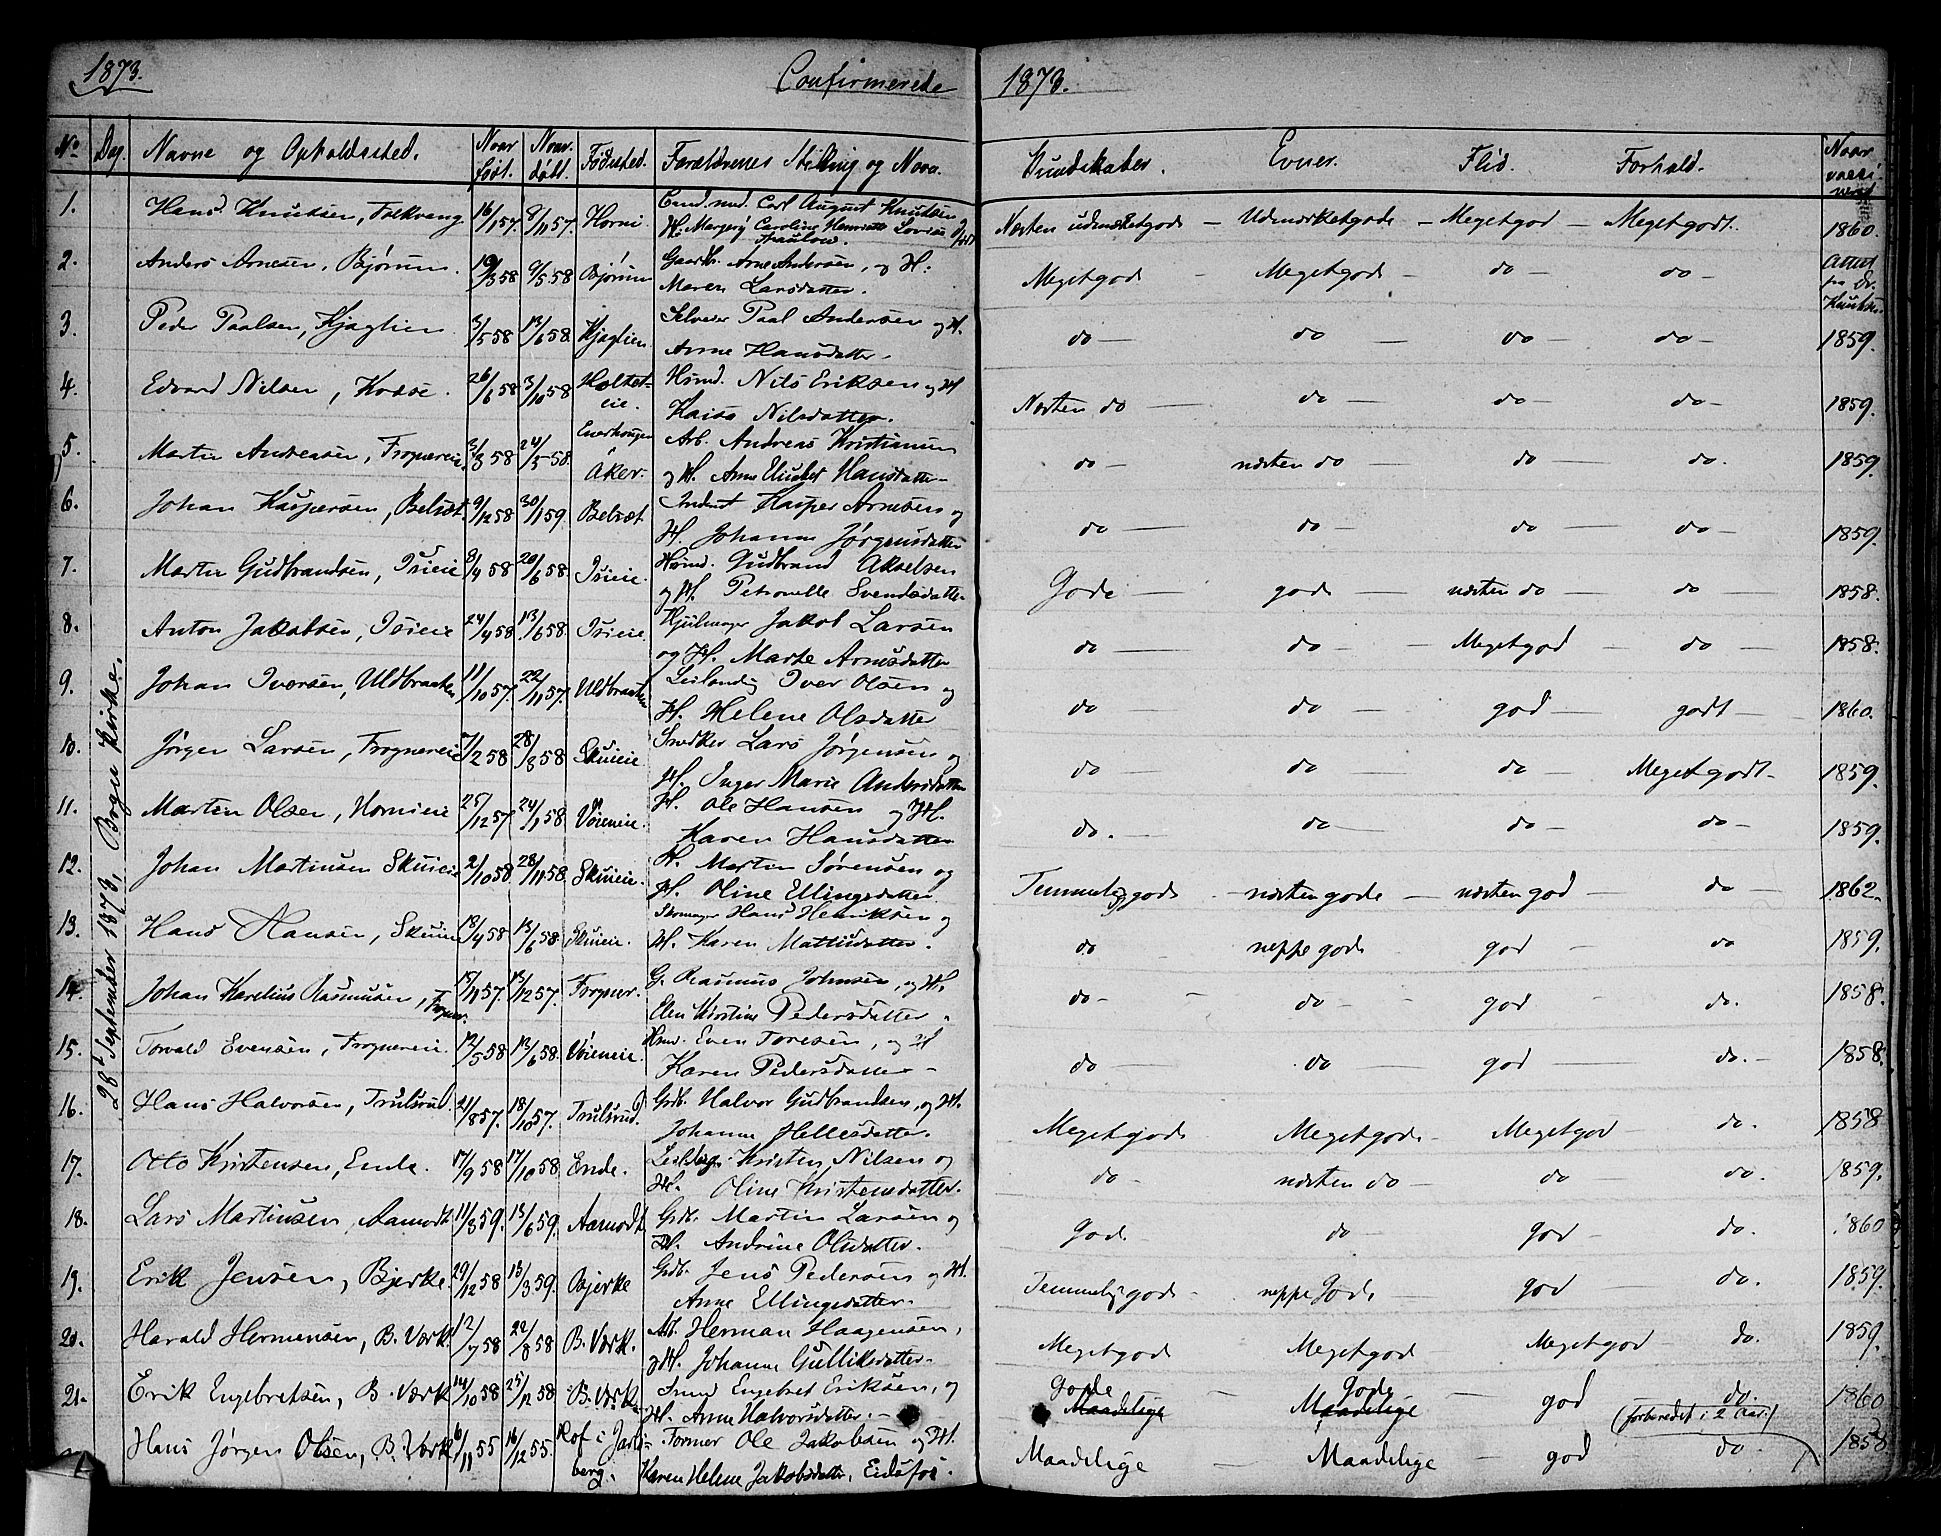 1873. Confirmerede 1873.
No Dag. Navne og Opholdssted. Naar født. Naar døbt. Fødested. Forældrenes Stilling og Navn. Kundskaber. Evner. Flid. Forhold. Naar vacci-neret
28de September 1873, Bryn Kirke.
1. Hans Knutsen, Falkvang 16/1 57. 8/11 57. Horni. Cand. med. Carl August Knutsen Næsten udmærketgode — Udmærketgode — Megetgod — Megetgodt. 1860.
H. Margery Caroline Henriette Lovise
2. Anders Arnesen, Bjørum 19/3 58 9/5 58 Bjørum Gaardbr. Arne Andersen, og H: Megetgode — Megetgode — do — do — Attest fra Dr. Knutsen
Maren Larsdatter.
3. Peder Paalsen, Kjaglien 3/5 58 13/6 58. Kjaglien. Selveier Paal Andersen og H. do — do — do — do — 1859.
Anne Hansdatter —
4. Edvard Nilsen, Kolsø. 26/6 58 3/10 58 Holtet-eie. Hsmd. Nils Eriksen og H Næsten do — do — do — do — 1859.
Kaisa Nilsdatter.
5. Martin Andreasen, Frognereie 3/3 58 24/5 58. Enerhougen Aker. Arb. Andreas Kristiansen do — næsten do — do — do. 1859.
og H. Anne Elisabet Hansdatter —
6. Johan Kaspersen, Belset. 9/12 58 30/1 59. Belset Inderst Kasper Arnesen og do — do — do — do — 1859.
H. Johanne Jørgensdatter
7. Martin Gudbrandsen, Isieie 8/4 58 20/6 58. Isieie. Hsmd. Gudbrand Akselsen Gode — gode — næsten do — do — 1858.
og H. Petronelle Svendsdatter
8. Anton Jakobsen, Isieie 24/4 58 13/6 58. Isieie. Hjulmager Jakob Larsen do — do — Megetgod — do — 1858.
og H. Marte Arnesdatter
9. Johan Iversen, Uldbraaten 11/10 57. 22/11 57. Uldbraaten Leilændig Iver Olsen og do — do — god — godt — 1860.
H. Helene Olsdatter
10. Jørgen Larsen, Frognereie 7/2 58 28/3 58 Skuieie Snedker Lars Jørgensen og do — do — do — Megetgodt — 1859.
H. Inger Marie Andersdatter
11. Martin Olsen, Hornieie 25/12 57 24/1 58 Vøieneie. H. Ole Hansen og H. do. — do — do — do — 1859.
Karen Hansdatter
12. Johan Martinsen Skuieie 2/10 58 28/11 58. Skuieie. H. Martin Sørensen og Temmeliggode — næstengode — næsten god — do — 1862.
H. Oline Ellingsdatter.
13. Hans Hansen, Skuieie 18/4 58 13/6 58. Skuieie. Skomager Hans Henriksen og do neppe gode god — do 1859.
H. Karen Mathisdatter.
14. Johan Karelius Rasmusen, Frogner. 15/11 57. 13/12 57. Frogner. G. Rasmus Johnsen, og H. do — do — god do. 1858.
Elen Kirstine Pedersdatter.
15. Torvald Evensen, Frognereie. 12/5 58 13/6 58. Vøieneie. Hsmd. Even Toresen, og H do — do god — do. — 1858.
Karen Pedersdatter —
16. Hans Halvorsen, Trulsrud. 21/8 57. 18/10 57. Trulsrud. Grdb. Halvor Gudbrandsen, og H. Megetgode Megetgode — Megetgod — do. 1858
Johanne Hellesdatter.
17. Otto Kristensen, Ende. 17/9 58 17/10 58 Ende. Leilændig Kristen Nilsen og do — næsten do — do — do. 1859.
H. Oline Kristensdatter.
18. Lars Martinsen, Aamodt 11/3 59. 13/6 59. Aamodt. Grdb. Martin Larsen og god. do — god — do. 1860
H. Andrine Olsdatter.
19. Erik Jensen, Bjerke 29/12 58 13/3 59. Bjerke Grdb. Jens Pedersen og H. Temmeliggode — neppe gode — god — do. 1859.
Anne Ellingsdatter.
20. Harald Hermensen, B. Værk 12/7 58 22/8 58 B. Værk. Arb. Herman Haagensen, Megetgod Megetgod Megetgod — do. 1859.
og H. Johanne Gulliksdatter.
21. Erik Engebretsen, B. Værk 14/10 58 25/12 58 B. Værk. Smed Engebret Eriksen, og Gode Maadelige — gode Maadelige — god do. 1860
H. Anne Halvorsdatter. —
(forberedet i 2 Aar)
Hans Jørgen Olsen, B. Værk 6/11 55 16/12 55. Hof i Jarls-berg. Former Ole Jakobsen og H. Maadelige — Maadelige — god do. 1858
Karen Helene Jakobsdatter, Eidsfos.